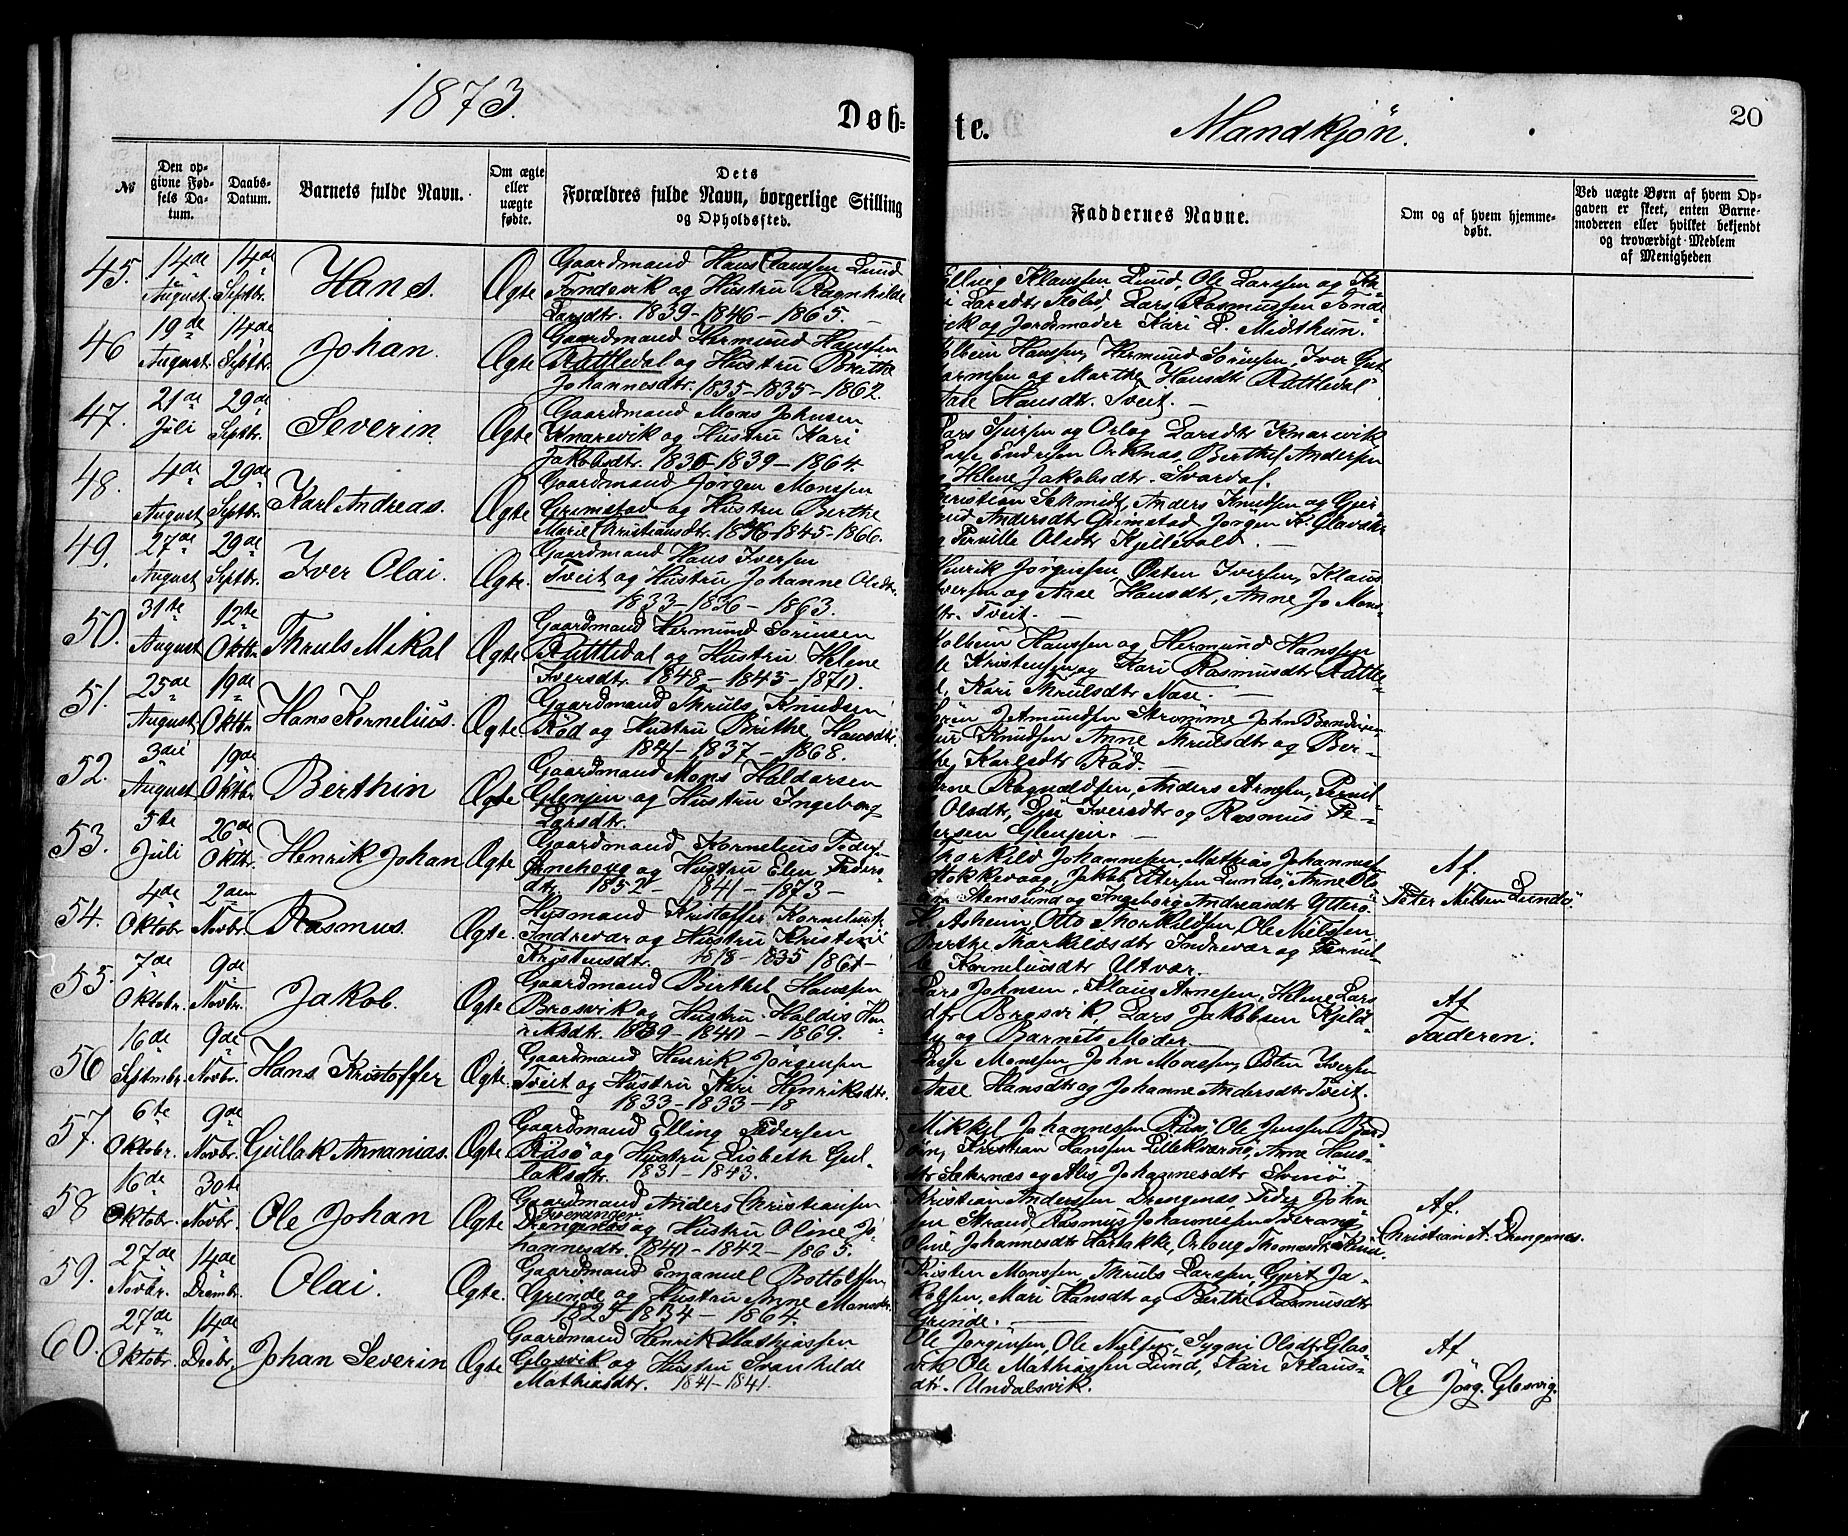 1873.
Døb-
te.
Mandkjøn.
20
№
Den op-
givne Fød-
sels Da-
tum.
Daabs-
Datum.
Barnets fulde Navn.
Om ægte
eller
uægte
født.
Dets
Forældres fulde Navn, borgerlige Stilling
og Opholdssted.
Faddernes Navne.
Om og af hvem hjemme-
døbt.
Ved uægte Børn af hvem Op-
gaven er skeet, enten Barne-
moderen eller hvilket bekjendt
og troværdigt Medlem
af Menigheden
45.
14de August.
14de Septbr.
Hans.
Ægte
Gaardmand Hans Clausen Lund
Tondevik og Hustru Ragnhilde
Larsdtr. 1839 - 1846 - 1865.
Elling Klaussen Lund, Ole Larssen og
Larsdtr Lars Rasmussen Tonde
vik og Jordmoder Kari L. Midthun.
46
19de August.
14de Septbr.
Johan.
Ægte
Gaardmand Hermund Hanssen
Rutledal og Hustru Brithe
Johannesdtr. 1835 - 1835 - 1862.
Kolbein Hanssen, Hermund Sørensen, Iver Gut
ormsen og Marthe Hansdtr Rutledal
Aase Hansdtr. Tveit. —
47.
21de Juli
29de Septbr.
Severin
Ægte
Gaardmand Mons Johnsen
Knarevik og Hustru Kari
Jakobsdtr. 1836 - 1839 - 1864.
Lars Sjursen og Orlog Larsdtr Knarevik
Lasse Endresen Berthel Andersen
Helene Jakobsdtr. Svardal.
48.
4de August
29de Septbr.
Karl Andreas.
Ægte
Gaardmand Jørgen Monssen
Grimstad og Hustru Berthe
Marie Christiansdtr. 1846 - 1845 - 1866.
Christian Schmidt, Anders Knudsen og Gjer
trud Andersdtr Grimstad Jørgen K.
Pernille Olsdtr Kjellevold. —
49.
27de August
29de Septbr.
Iver Olai.
Ægte.
Gaardmand Hans Iversen
Tveit og Hustru Johanne Olsdtr.
1833 - 1836 - 1863.
Henrik Jørgenssen, Østen Iversen, Klaus
Iversen og Aase Hansdtr, Anne Jo Mons-
dtr. Tveit. —
50.
31te August
12te Oktbr.
Thruls Mikal
Ægte
Gaardmand Hermund Sørensen
Rutledal og Hustru Helene
Iversdtr. 1848 - 1845 - 1870.
Kolbein Hanssen og Hermund Hanssen
Ole Kristensen og Kari Rasmusdtr Rutle-
dal, Kari Thrulsdtr Nase. —
51.
25de August
19de Oktbr.
Hans Kornelius.
Ægte
Gaardmand Thruls Knudsen
Rød og Hustru Brithe Hansdtr.
1841 - 1837 - 1868.
Jetmundsen Strømme John
Knudsen Anne Thrulsdtr og Ber-
the Karlsdtr Rød.
52.
3die August
19de Oktbr.
Berthin
Ægte
Gaardmand Mons Haldorsen
Glenjen og Hustru Ingeborg
Larsdtr.
Arne Ragnaldsen, Anders Arnesen, Pernil-
Olsdtr, Lise Iversdtr og Rasmus Pe-
dersen Glenjen. —
53.
5te Juli
26de Oktbr.
Henrik Johan
Ægte
Gaardmand Kornelius Peders
og Hustru Elen Peders-
dtr. 1852 - 1841 - 1873 —
Thorkild Johannesen, Mathias Johannes
Stokkevaag, Jakob Petersen Lundø, Anne Ols
Stensund og Ingeborg Andreasdtr Ytterø
Af.
Peter Nilsen Lundø
54.
4de Oktobr
2den Novbr.
Rasmus.
Ægte.
Husmand Kristoffer Kornelius
Indrevær og Hustru Kristine
Kristensdtr. 1818 - 1835 1861 —
H. Askeim, Otto Thorkildsen, Ole Nielsen
Berthe Thorkildsdtr Indrevær og Pernil-
le Korneliusdtr Utvær.
55.
7de Oktobr.
9de Novbr.
Jakob.
Ægte
Gaardmand Berthel Hanssen
Brosvik og Hustru Haldis Hen-
riksdtr. 1839 - 1840 - 1869.
Lars Johnsen, Klaus Arnesen, Helene Lars
dtr Brosvik, Lars Jakobsen
og Barnets Moder.
Af
Faderen.
56
16de Septmbr.
9de Novbr.
Hans Kristoffer
Ægte.
Gaardmand Henrik Jørgensen
Tveit og Hustru Kari Henriksdtr.
1833 - 1833 - 18
Lasse Monssen John Monssen, Østen Iversen
Aase Hansdtr og Johanne Andersdtr Tveit.
57.
6te Oktobr.
9de Novbr.
Gullak Annanias.
Ægte
Gaardmand Elling Pedersen
Risø og Hustru Lisbeth Gul-
laksdtr. 1831 - 1843.
Mikkel Johannessen Risø, Ole Jenssen
Kristian Hanssen Lillekværnø, Anne Hans-
dtr og Alis Johannesdtr Svinø
58
16de Oktobr.
30te Novbr.
Ole Johan
Ægte
Gaardmand Anders Christiansen
Tveranger
Drengenes og Hustru Oline Jo-
hannesdtr. 1840 - 1842 - 1865.
Kristian Anderssen Drengenes, Peder John-
sen Strand, Rasmus Johannessen Tverang
Oline Johannesdtr Harbakke, Orloug Thomasdtr
Af.
Christian A. Drengenes.
59.
27de Novbr.
14de Decmbr.
Olai.
Ægte.
Gaardmand Emanuel Bottolfsen
Grende og Hustru Anne Monsdtr.
1825 1834 - 1864.
Kristen Monssen, Thruls Larssen, Gjert Ja-
kobsen, Mari Hansdtr og Berthe Rasmusdtr
Grinde. —
60.
27de Oktobr.
14de Decbr.
Johan Severin
Ægte
Gaardmand Henrik Mathiassen
Glosvik og Hustru Svanhilde
Mathiasdtr. 1841 - 1841.
Ole Jørgensen, Ole Nilsen, Sygni Olsdtr Glos-
vik Ole Mathiassen Lund, Kari Klaus-
dtr. Undalsvik.
Af
Ole Jørg. Glosvig.